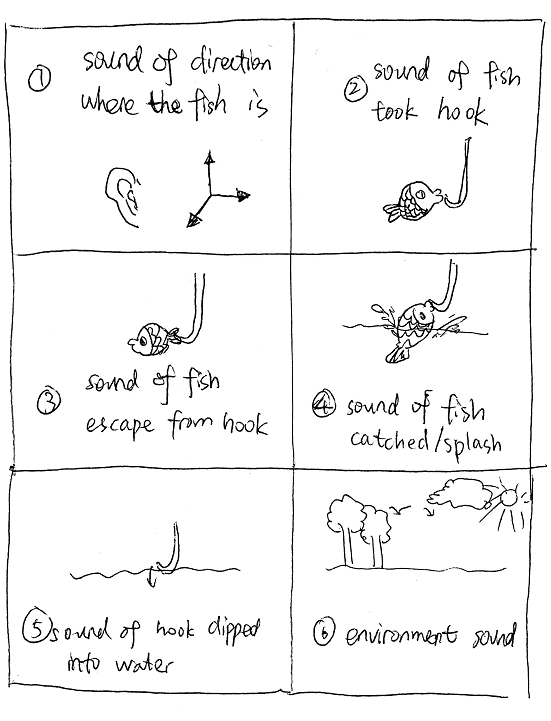 ① sound of direction
where the fish is
② sound of fish
took hook
③ sound of fish
escape from hook
④ sound of fish
catched/splash
⑤ sound of hook dipped
into water
⑥ environment sound